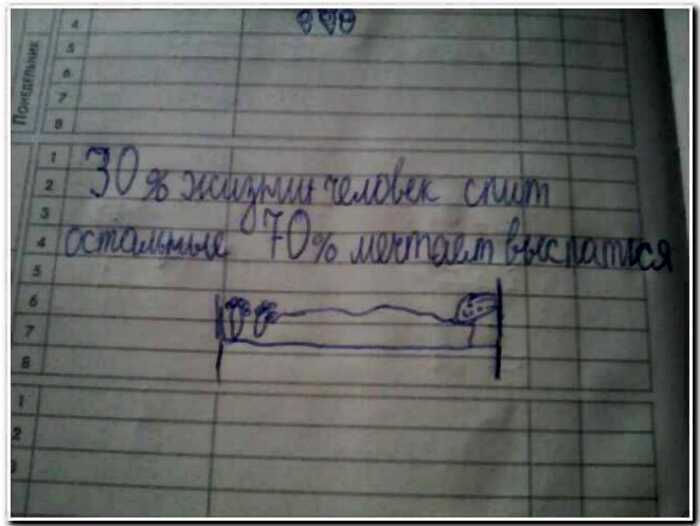 4
5
6
7
8
Понедельник
1
2
3
4
5
6
7
8
30% жизни человек спит
остальные 70% мечтает выспаться
1
2
3